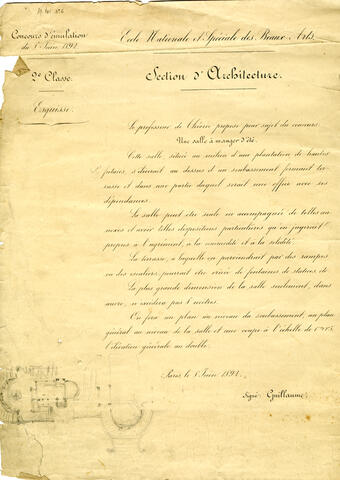 Concours d'émulation
du 8 Juin 1892.
Ecole Nationale et Spéciale des Beaux-Arts.
2e Classe.
Section d'Architecture.
Esquisse.
Le professeur de Théorie propose pour sujet du concours.
Une salle à manger d'été.
Cette salle, située au milieu d'une plantation de hautes
futaies, s'élèverait au dessus d'un soubassement formant ter-
rasse et dans une partie duquel serait une office avec ses
dépendances.
La salle peut être seule ou accompagnée de telles an-
nexes et avoir telles dispositions particulières qu'on jugerait
propres à l'agrément, à la commodité et à la solidité.
La terrasse, à laquelle on parviendrait par des rampes
ou des escaliers, pourrait être ornée de fontaines de statues &a
La plus grande dimension de la salle seulement, dans
œuvre, n'excédera pas 12 mètres.
On fera un plan au niveau du soubassement, un plan
général au niveau de la salle et une coupe à l'échelle de
l'élévation générale au double.
Paris le 8 Juin 1892.
Signé: Guillaume.